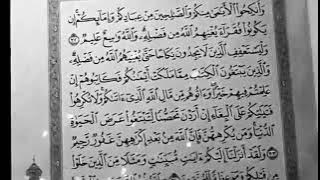 وَأَنكِحُوا۟ ٱلْأَيَـٰمَىٰ مِنكُمْ وَٱلصَّـٰلِحِينَ مِنْ عِبَادِكُمْ وَإِمَآئِكُمْ إِن
يَكُونُوا۟ فُقَرَآءَ يُغْنِهِمُ ٱللَّهُ مِن فَضْلِهِۦ وَٱللَّهُ وَٰسِعٌ عَلِيمٌ ٣٢
وَلْيَسْتَعْفِفِ ٱلَّذِينَ لَا يَجِدُونَ نِكَاحًا حَتَّىٰ يُغْنِيَهُمُ ٱللَّهُ مِن فَضْلِهِۦ
وَٱلَّذِينَ يَبْتَغُونَ ٱلْكِتَـٰبَ مِمَّا مَلَكَتْ أَيْمَـٰنُكُمْ فَكَاتِبُوهُمْ إِنْ
عَلِمْتُمْ فِيهِمْ خَيْرًا وَءَاتُوهُم مِّن مَّالِ ٱللَّهِ ٱلَّذِىٓ ءَاتَىٰكُمْ وَلَا تُكْرِهُوا۟
فَتَيَـٰتِكُمْ عَلَى ٱلْبِغَآءِ إِنْ أَرَدْنَ تَحَصُّنًا لِّتَبْتَغُوا۟ عَرَضَ ٱلْحَيَوٰةِ
ٱلدُّنْيَا وَمَن يُكْرِههُّنَّ فَإِنَّ ٱللَّهَ مِنۢ بَعْدِ إِكْرَٰهِهِنَّ غَفُورٌ رَّحِيمٌ ٣٣
وَلَقَدْ أَنزَلْنَآ إِلَيْكُمْ ءَايَـٰتٍ مُّبَيِّنَـٰتٍ وَمَثَلًا مِّنَ ٱلَّذِينَ خَلَوْا۟
مِن قَبْلِكُمْ وَمَوْعِظَةً لِّلْمُتَّقِينَ